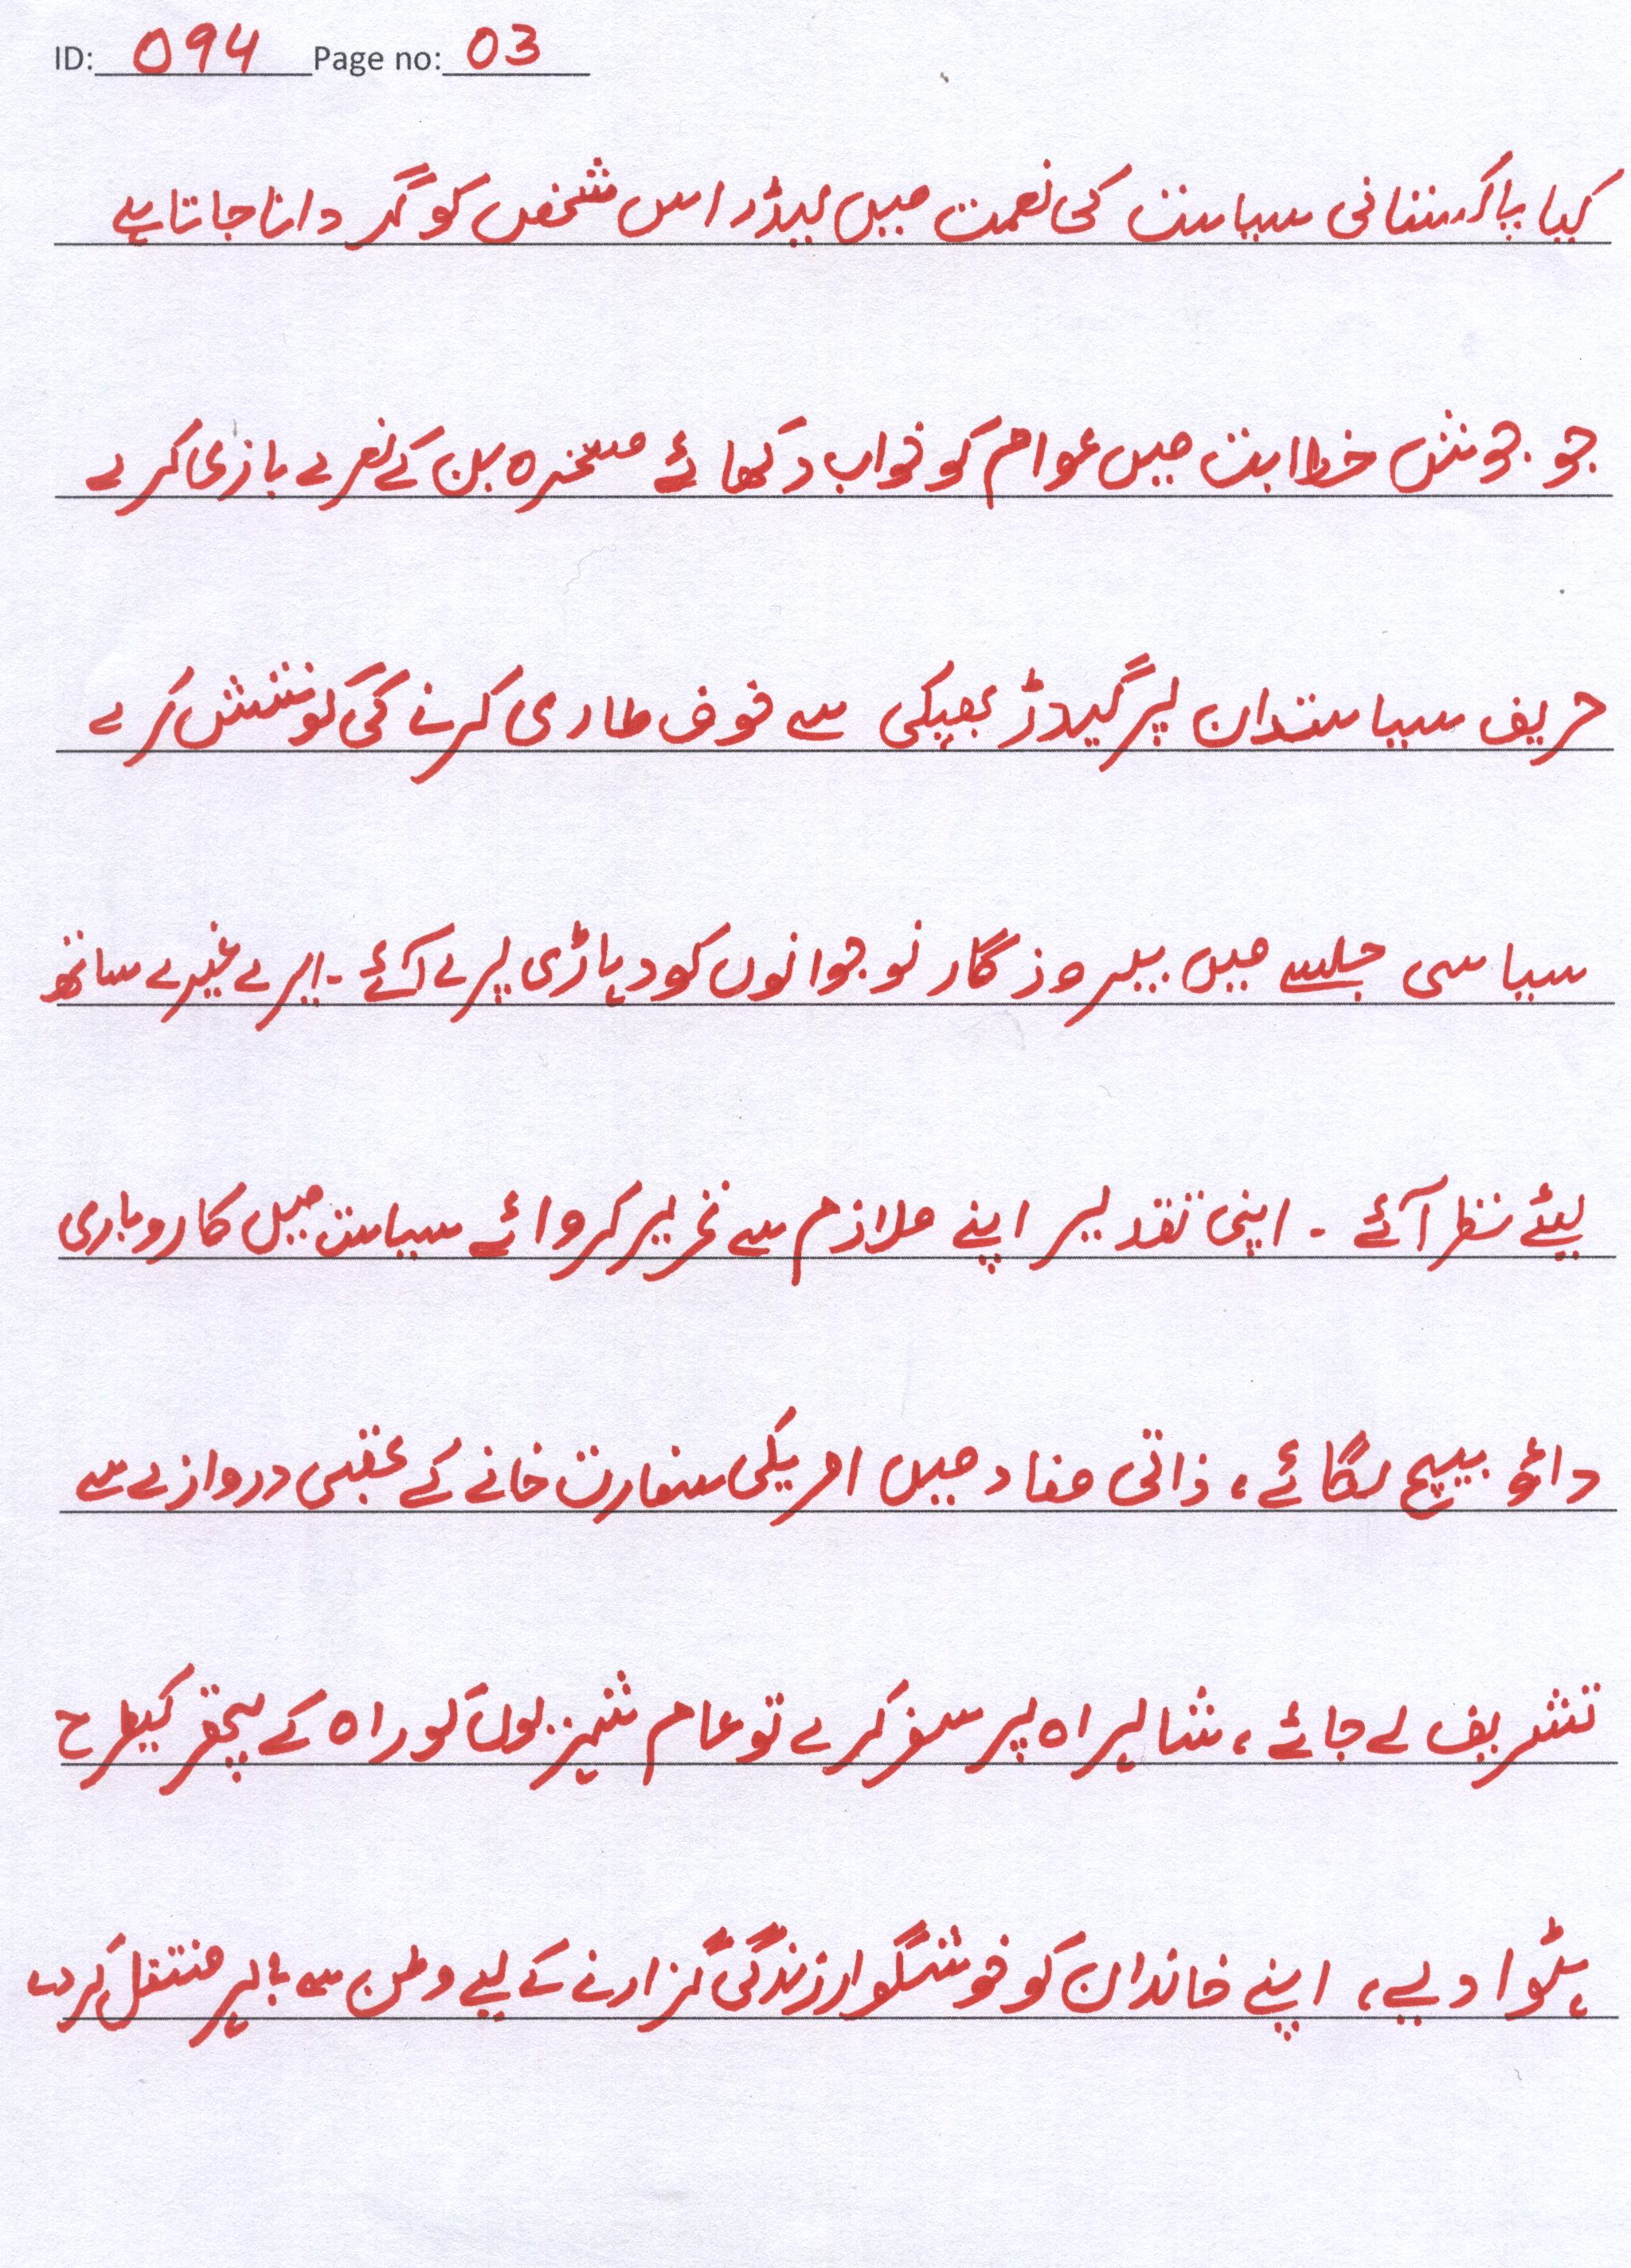 ID: 094 Page no: 03
کیا پاکستانی سیاست کی نعمت میں لیڈر اس شخص کو گر دانا جاتا ہے
جو جوش خطابت میں عوام کو خواب دکھائے مسخرہ بن کے نعرے بازی کرے
حریف سیاستدان پر گیدڑ بھبکی سے خوف طاری کرنے کی کوشش کرے
سیاسی جلسے میں بیروزگار نوجوانوں کو دہاڑی پر لے آئے ۔ ایرے غیرے ساتھ
لیئے نظر آئے ۔ اپنی تقدیر اپنے ملازم سے تحریر کروائے سیاست میں کاروباری
دائو پیچ لگائے ، ذاتی مفاد میں امریکی سفارت خانے کے عقبی دروازے سے
تشریف لے جائے ، شاہراہ پر سفر کرے تو عام شہریوں کو راہ کے پتھر کیطرح
ہٹوا دے ، اپنے خاندان کو خوشگوار زندگی گزارنے کے لیے وطن سے باہر منتقل کردے